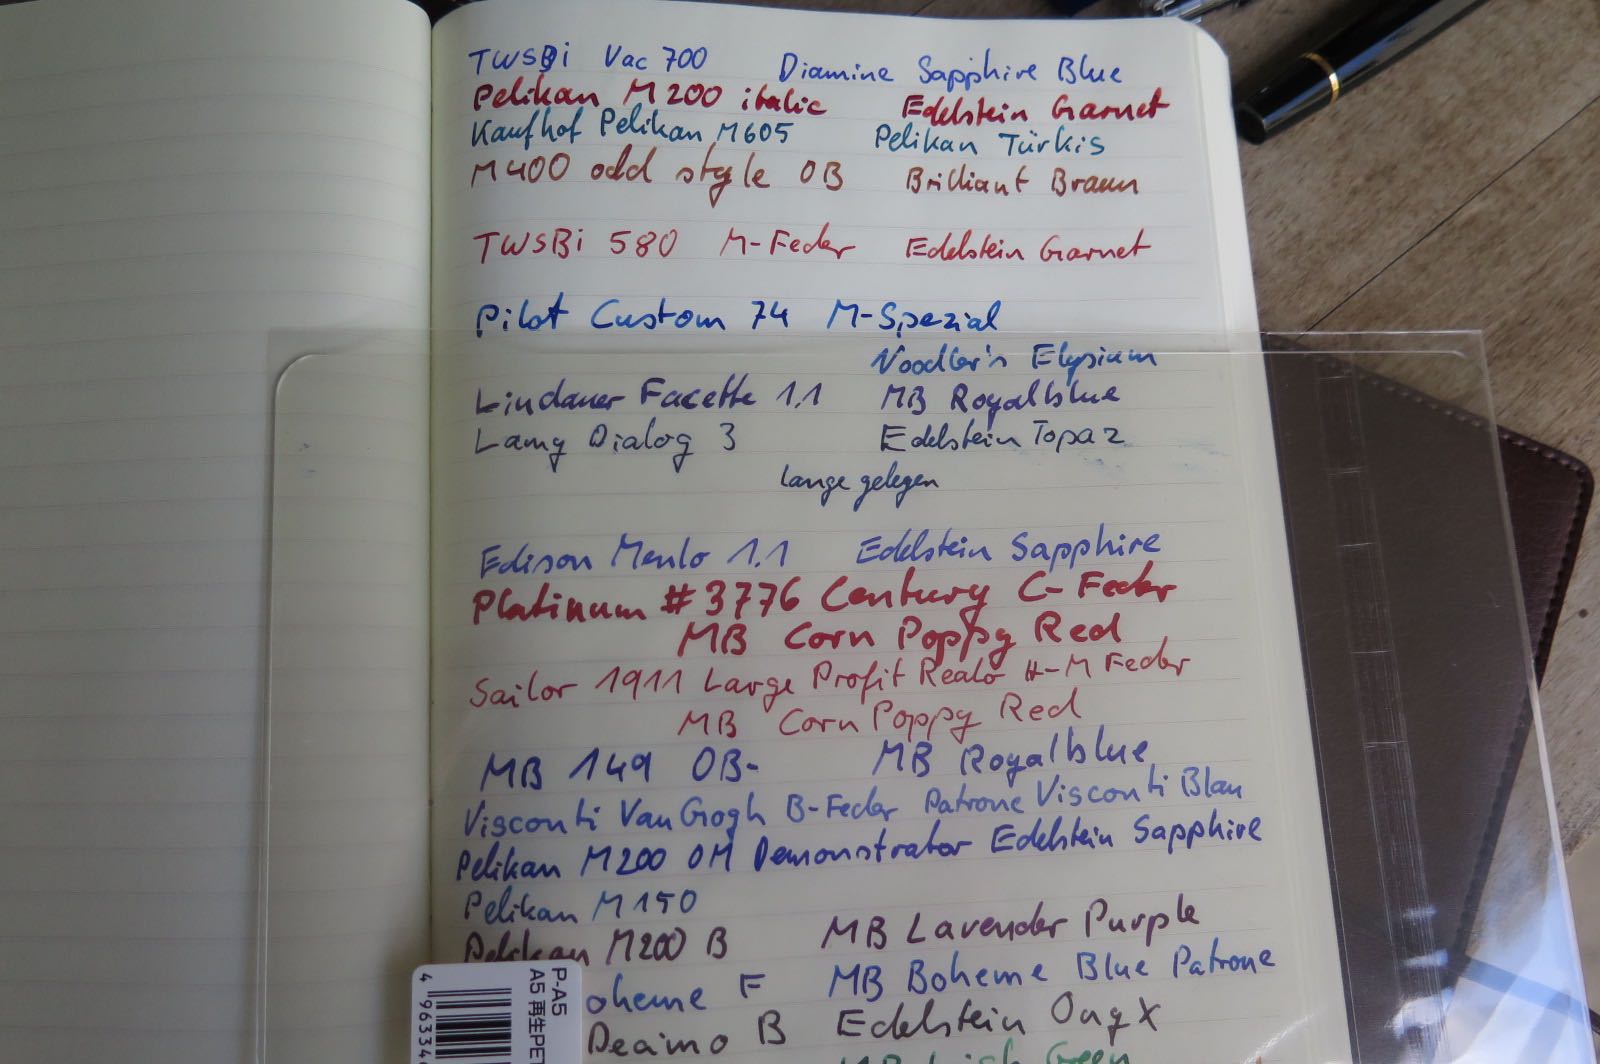 TWSBi Vac 700 Diamine Sapphire Blue
Pelikan M200 italic Edelstein Garnet
Kaufhof Pelikan M605 Pelikan Türkis
M400 odd style OB Brilliant Braun
TWSBi 580 M-Feder Edelstein Garnet
Pilot Custom 74 M-Spezial
Noodler's Elysium
Lindauer Facette 1.1 MB Royalblue
Lamy Dialog 3 Edelstein Topaz
lange gelegen
Edison Menlo 1.1 Edelstein Sapphire
Platinum #3776 Century C-Feder
MB Corn Poppy Red
Sailor 1911 Large Profit Realo H-M Feder
MB Corn Poppy Red
MB 149 OB- MB Royalblue
Visconti Van Gogh B-Feder Patrone Visconti Blau
Pelikan M200 OM Demonstrator Edelstein Sapphire
Pelikan M150
Pelikan M200 B MB Lavender Purple
oheme F MB Boheme Blue Patrone
B Edelstein Onyx
MB Irish Green
P-A5
A5 再生PET